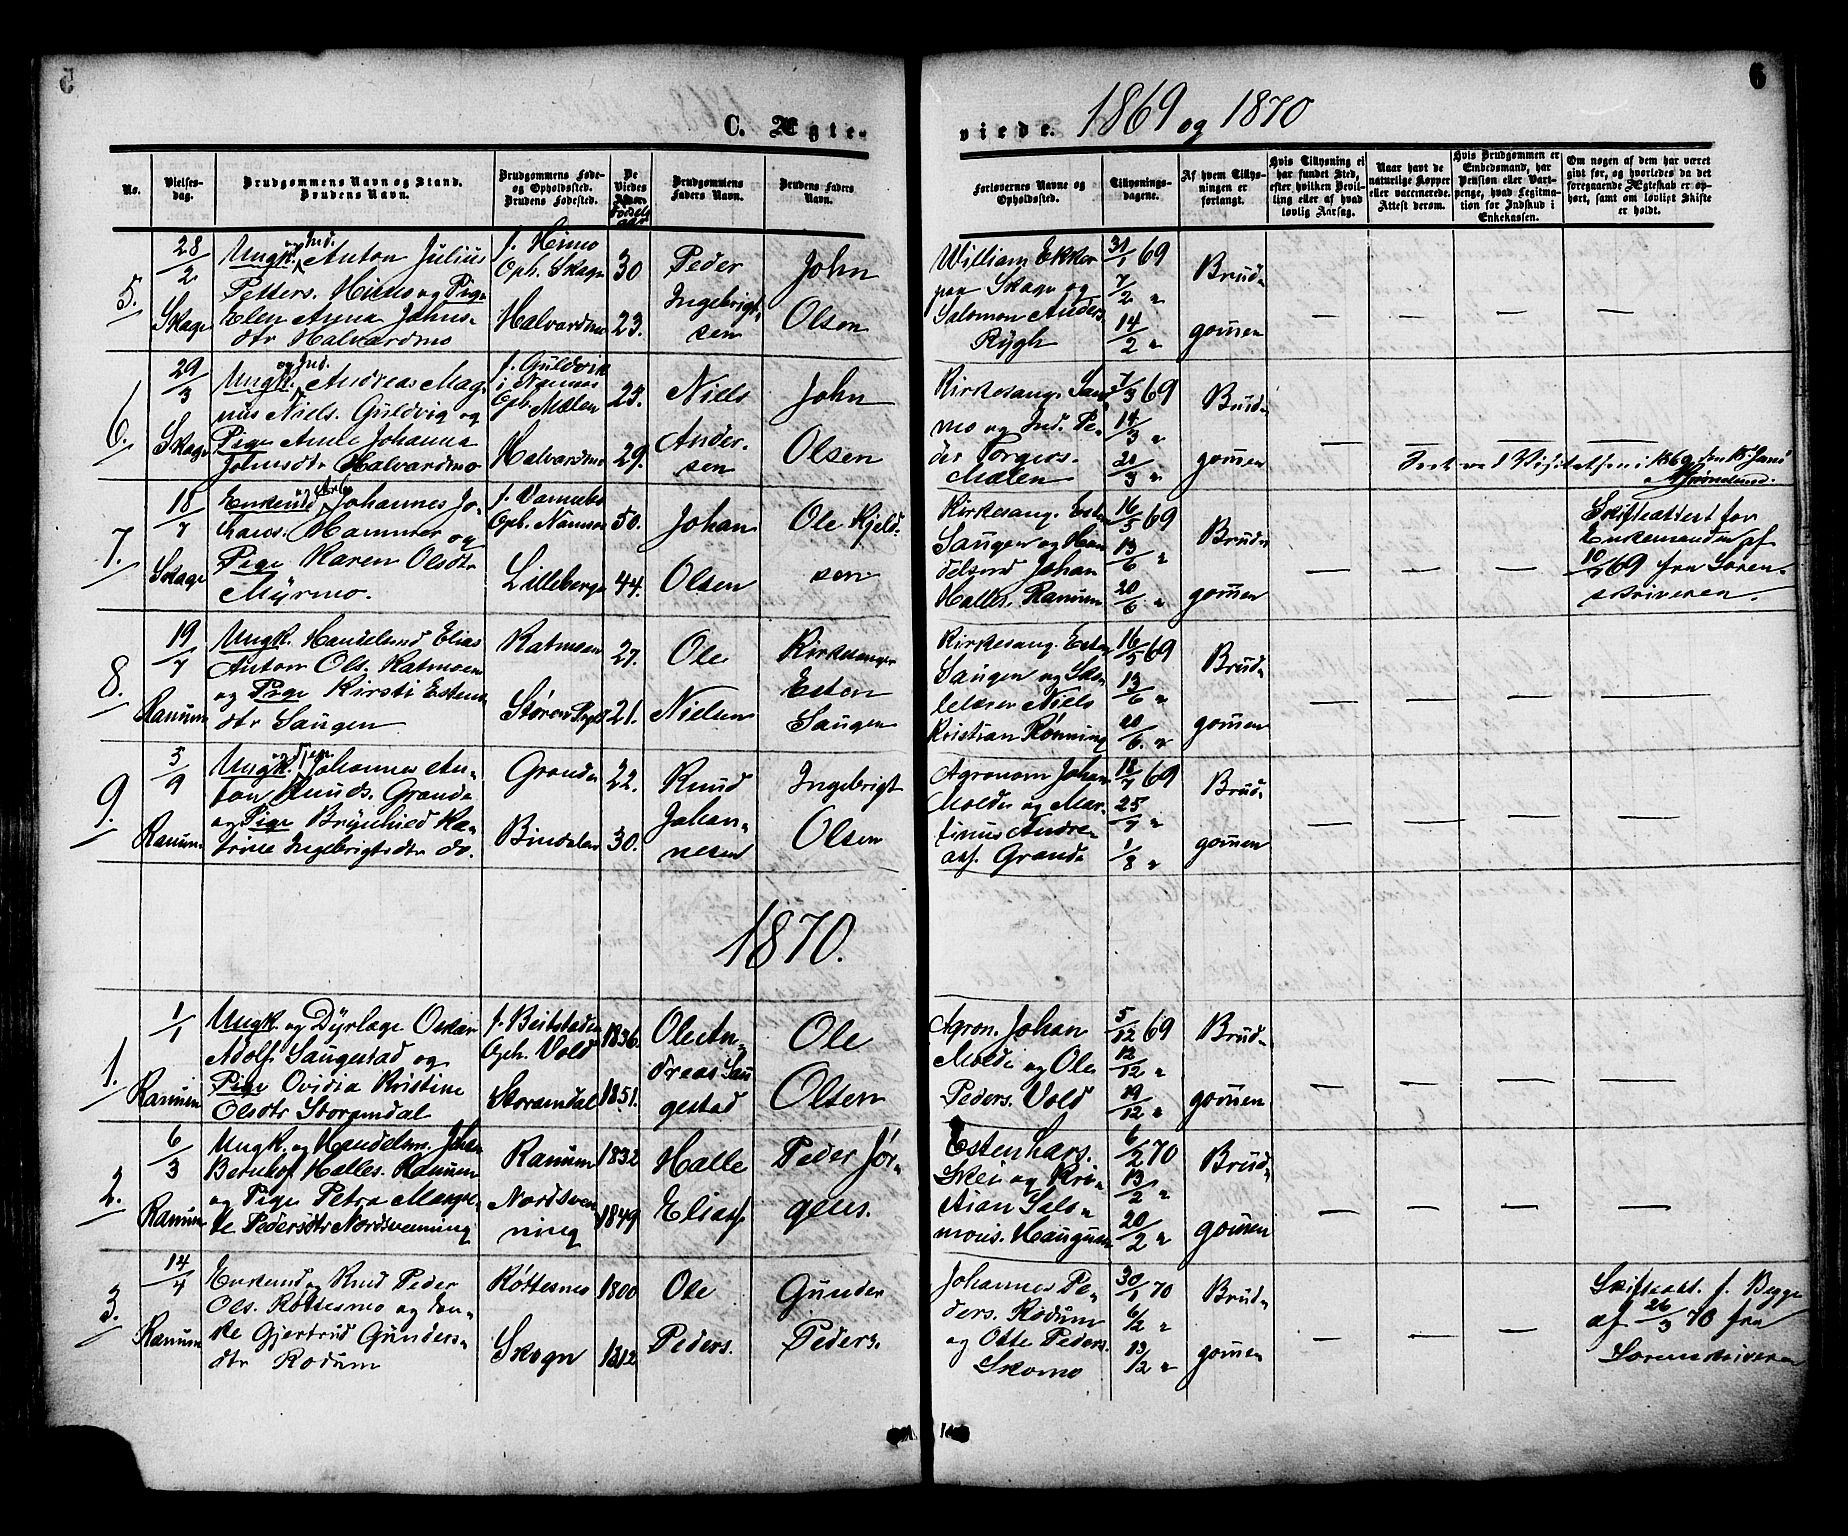 5
6
C. Ægte-
viede. 1869 og 1870
No.
Vielses-
dag.
Brudgommens Navn og Stand.
Brudens Navn.
Brudgommens Føde-
og Opholdssted.
Brudens Fødested.
De
Viedes
Fødsels
aar
Brudgommens
Faders Navn.
Brudens Faders
Navn.
Forlovernes Navne og
Opholdssted.
Tillysnings-
dagene.
Af hvem Tillys-
ningen er
forlangt.
Hvis Tillysning ei
har fundet Sted,
efter hvilken Bevil-
ling eller af hvad
lovlig Aarsag.
Naar havt de
naturlige Kopper
eller vaccinerede.
Attest derom.
Hvis Brudgommen er
Enkedsmand, har
Pension eller Vart-
penge, hvad Legitima-
tion for Indskud i
Enkekassen.
Om nogen af dem har været
gift før, og hvorledes da det
foregaaende Ægteskab er op-
hørt, samt om lovligt Skifte
er holdt.
5.
28/2
Skage
Ungk. og Ind. Anton Julius
Petters. Himo og Pige
Elen Anna Johns-
dtr Halvardmo
f. Himo
Oph. Skage
Halvardmo
30
23.
Peder
Ingebrigt-
sen
John
Olsen
William Ekker
paa Skage og
Salomon Anders.
Rygh
31/1 69
7/2 "
14/2 "
Brud-
gommen
— — — —
6.
29/3
Skage
Ungk. og Ind. Andreas Mag-
nus Niels. Guldvig og
Pige Anne Johanna
Johnsdtr Halvardmo
f. Guldvik
i Namnas
Oph. Mælen
Halvardmo
25.
29.
Niels
Ander-
sen
John
Olsen
Kirkesang. San-
mo og Ind. Pe-
der Torgers.
Mælen
7/3 69
14/3 "
21/3 "
Brud-
gommen
— — — —
Visitatsen i 1869 den 15 Juni
7.
18/7
Skage
Enkemd og Arb. Johannes Jo-
hans. Hammer og
Pige Karen Olsdtr
Myrmo.
f. Vannebo
Oph. Namsos
Lilleberge
50.
44.
Johan
Olsen
Ole Kjeld-
sen
Kirkesang. Esten
Saugen og Han-
delsmd Johan
Halles. Ranum
16/5 69
13/6 "
20/6 "
Brud-
gommen
— — —
Skifteattest for
Enkemanden af
10/7 69 fra Soren-
skriveren.
8.
19/7
Ranum
Ungk. Handelsmd Elias
Anton Ols. Katmoen
og Pige Kirsti Estens-
dtr Saugen
Katmoen
Støren
27.
21.
Ole
Nielsen
Kirkesanger
Esten
Saugen
Kirkesang. Esten
Saugen og Sko-
lelærer Niels
Kristian Rønning
16/5 69
13/6 "
20/6. "
Brud-
gommen
— — — —
9.
5/9
Ranum
Ungk. og Johannes An-
ton Knuds. Grande
og Pige Brynhild Ka-
trine Ingebrigtsdtr do.
Grande
Bindalen
22.
30.
Knud
Johan-
nesen
Ingebrigt
Olsen
Agronom Johan
Molde og Mar-
tinus Andre-
ass. Grande
18/7 69
25/7 "
1/8 "
Brud-
gommen
— — — —
1870.
1.
1/1
Ranum
Ungk. og Dyrlæge Oskar
Adolf Saugestad og
Pige Ovidia Kristine
Olsdtr Storamdal
f. Beitstaden
Oph. Vold
Storamdal
1836.
1851.
Ole An-
dreas Sau-
gestad
Ole
Olsen
Agron. Johan
Molde og Ole
Peders. Vold
5/12 69
12/12 "
19/12 "
Brud-
gommen
— — — —
2.
6/3
Ranum
Ungk. og Handelsm. Johan
Bernhof Halles. Ranum
og Pige Petra Margre-
te Pedersdtr Nordsvenning
Ranum
Nordsven-
ning
1832
1849
Halle
Eliass.
Peder Jør-
gens.
Esten Lars.
Skei og Kri-
stian Salo-
mons. Haugum
6/2 70
13/2 "
20/2 "
Brud-
gommen
— — — —
3.
14/4
Ranum
Enkemd og Peder
Ols. Røttesmo og Enn-
ke Gjertrud Gunders-
dtr Rodum
Røttesmo
Skogn
1800
1812
Ole
Peders.
Gunder
Peders.
Johannes Pe-
ders. Rodum
og Otte Peders.
Skomo
30/1 70
6/2 "
13/2 "
Brud-
gommen
— — —
Skifteatt. f. Begge
af 26/3 70 fra
Sorenskriveren